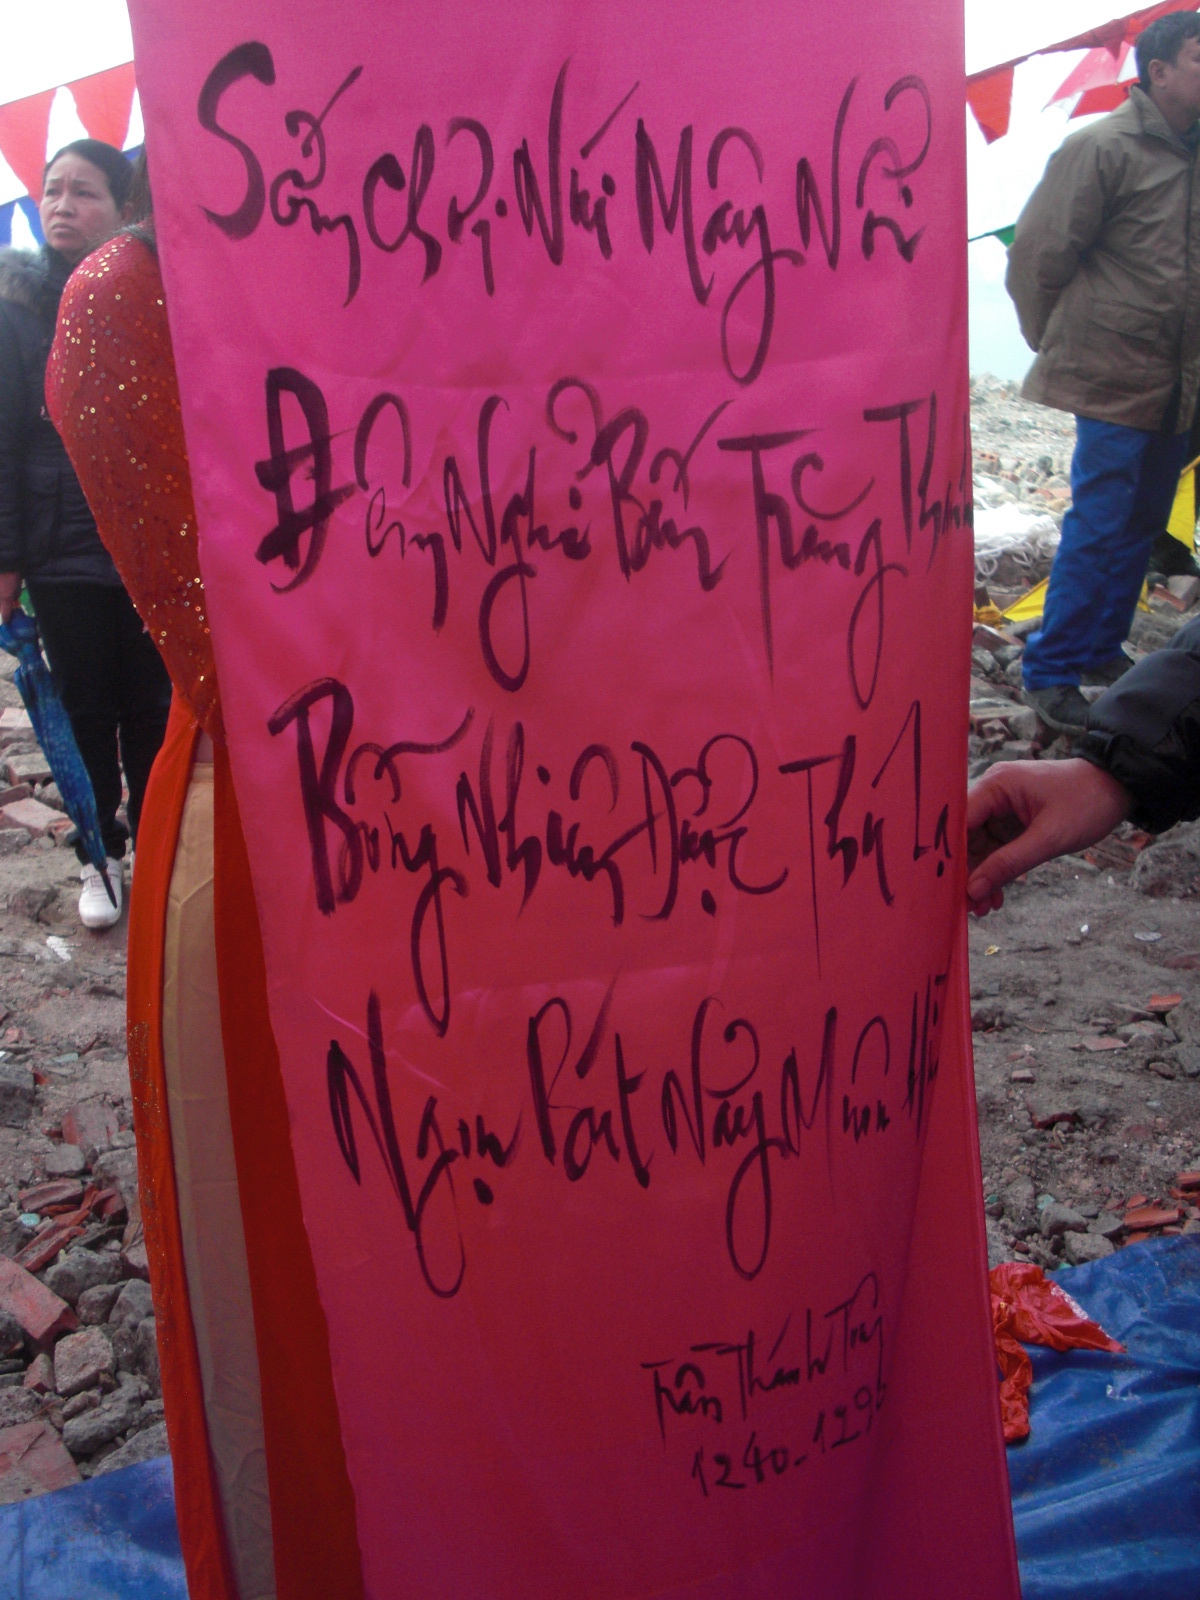 Sóng Chợ Núi Mây Nổi
Đêm Nghỉ Bến Trăng Thanh
Bỗng Nhiên Được Thú Lạ
Ngọn Bút Nảy Muôn Hì
Trần Thánh Tông
1240-1290